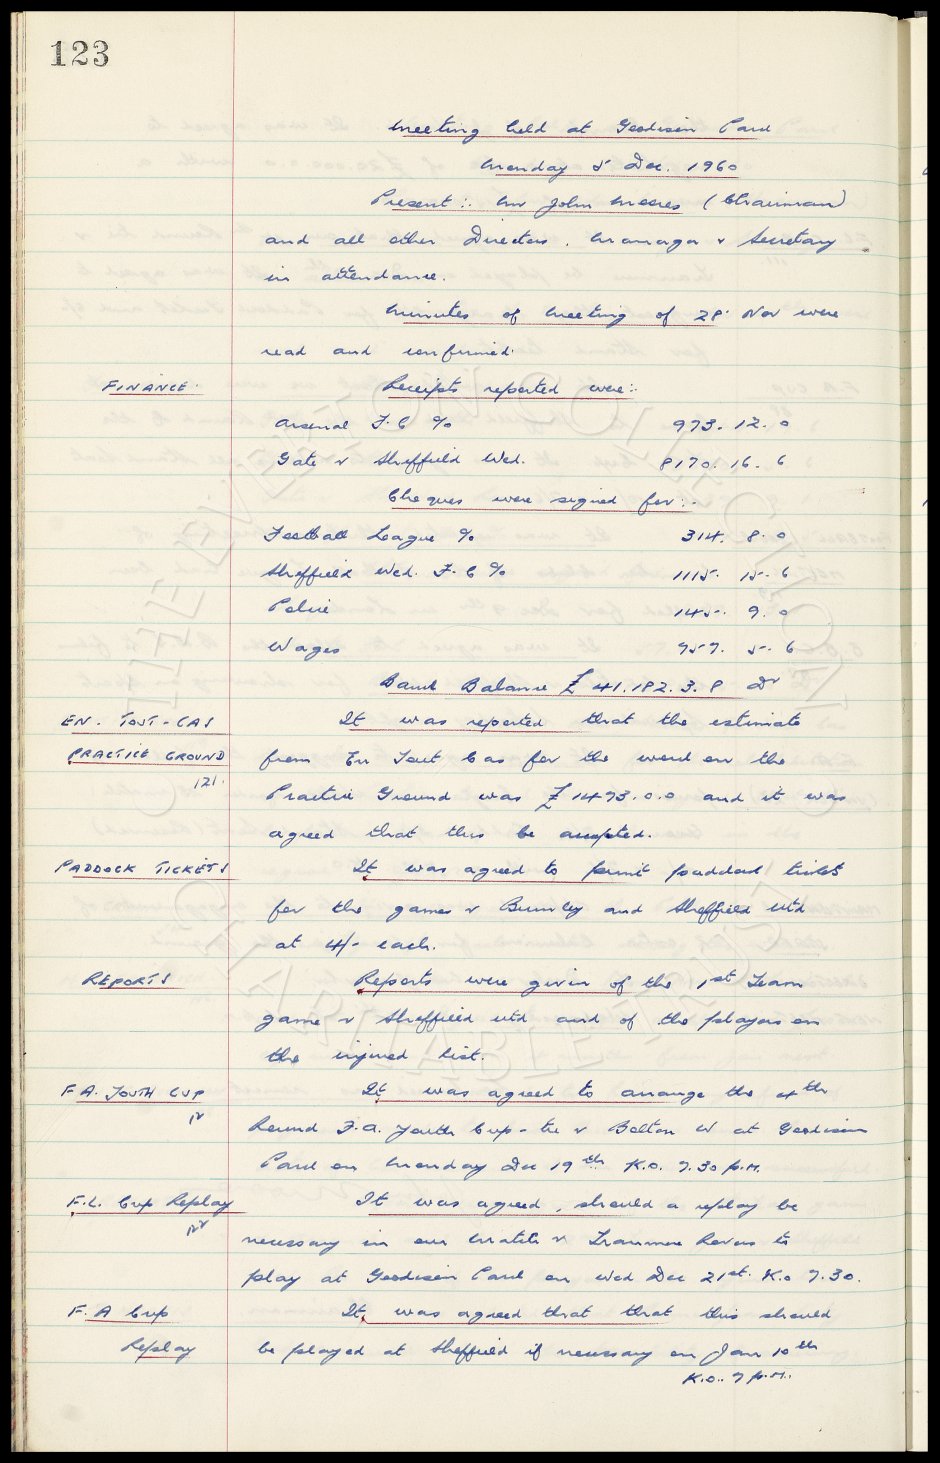 123
Meeting held at Goodison Park
Monday 5 Dec. 1960
Present :- Mr John Moores (Chairman)
and all other Directors. Manager & Secretary
in attendance.
Minutes of meeting of 28 Nov were
read and confirmed.
FINANCE. Receipts reported were:-
Arsenal F.C % 973. 12. 0
Gate v Sheffield Wed. 8170. 16. 6
Cheques were signed for:-
Football League % 314. 8. 0
Sheffield Wed. F.C % 1115. 15. 6
Police 145. 9. 0
Wages 957. 5. 6
Bank Balance £ 41.182.3.8 Dr
EN. TOUT-CAS It was reported that the estimate
PRACTICE GROUND from En Tout Cas for the work on the
121. Practice Ground was £1473.0.0 and it was
agreed that this be accepted.
PADDOCK TICKETS It was agreed to print paddock tickets
for the games v Burnley and Sheffield Utd
at 4/- each.
REPORTS Reports were given of the 1st Team
game v Sheffield Utd and of the players on
the injured list.
F A. YOUTH CUP It was agreed to arrange the 4th
Round F.A. Youth Cup-tie v Bolton W at Goodison
Park on Monday Dec 19th K.O. 7.30 p.m.
F.L. Cup Replay It was agreed, should a replay be
necessary in our match v Tranmere Rovers to
play at Goodison Park on Wed Dec 21st. K.o 7.30.
F.A Cup It was agreed that that this should
Replay be played at Sheffield if necessary on Jan 10th
K.O.. 7 p.m..
THE EVERTON COLLECTION
CHARITABLE TRUST